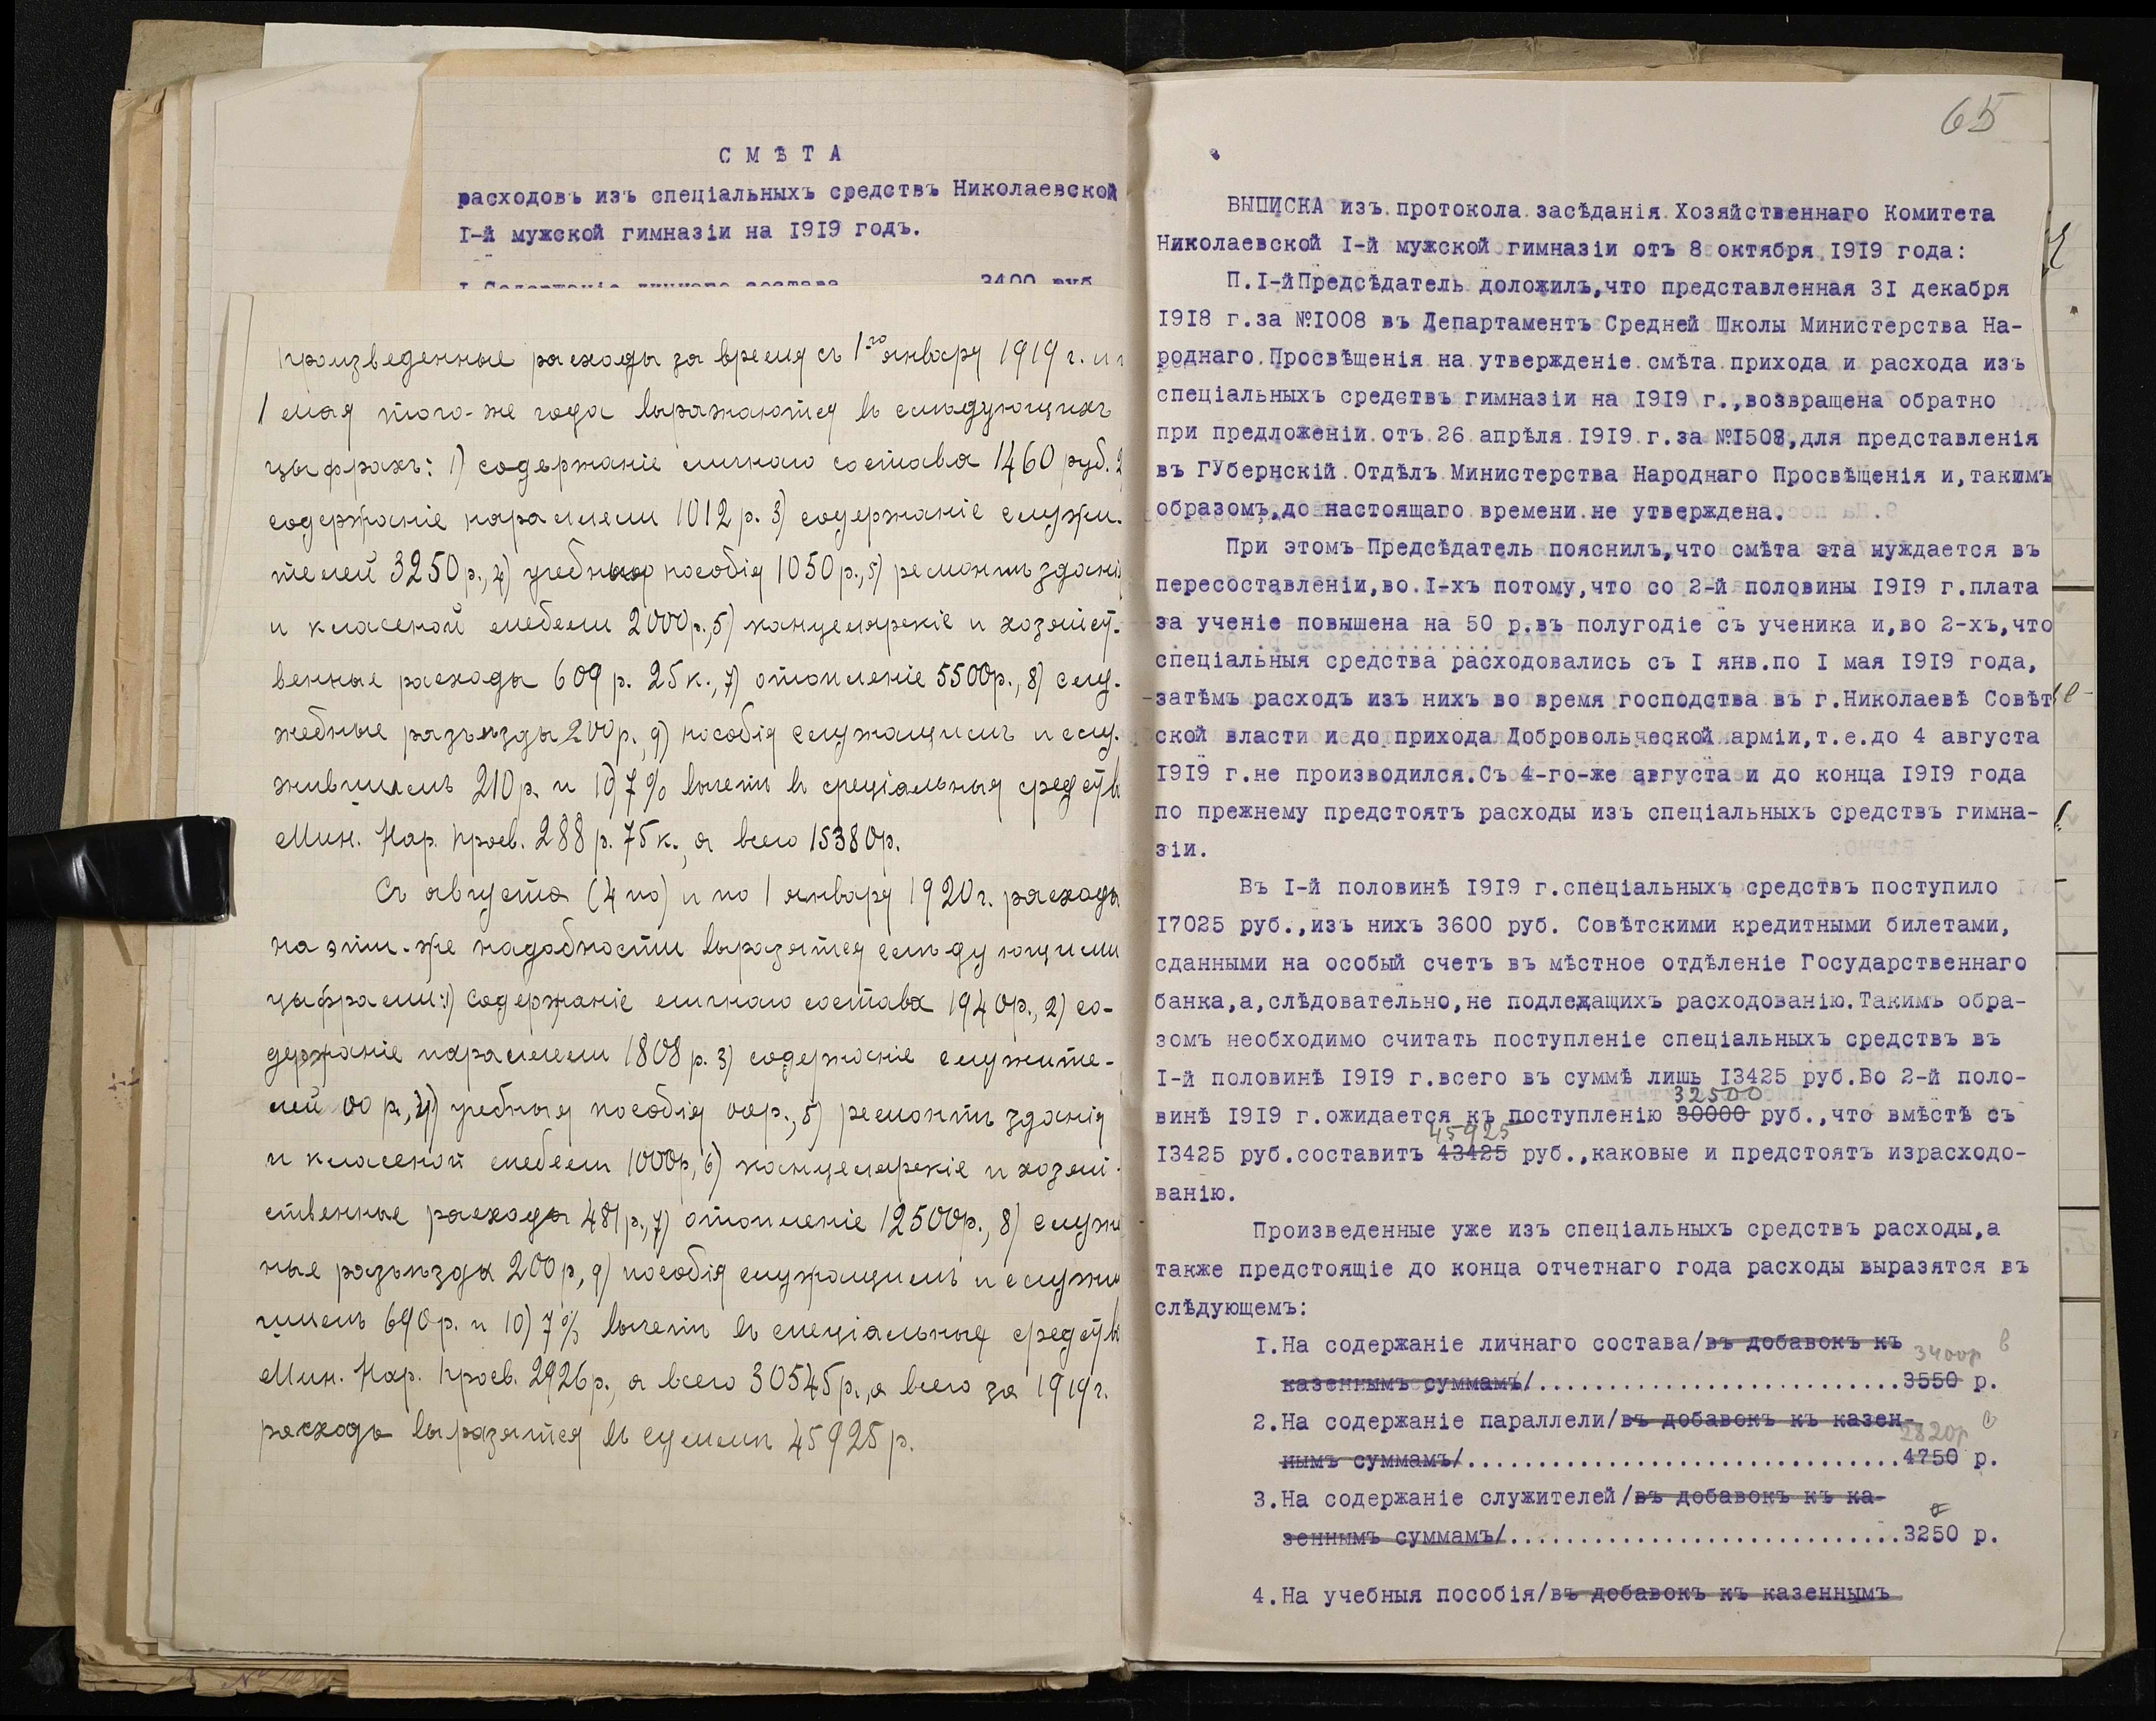 СМѢТА
расходовъ изъ спецiальныхъ средствъ Николаевской
I-й мужской гимназiи на 1919 годъ.
I Содержанiе личнаго состава 3400 руб
произведенные расходы за время съ 1го январь 1919 г. и п
1 мая того-же года выражаются въ слѣдующихъ
цыфрахъ: 1) содержанiе личнаго состава 1460 руб. 2
содержанiе параллели 1012 р. 3) содержанiе служи-
телей 3250 р., 4) учебныя пособiя 1050 р., 5) ремонтъ зданiя
и классной мебели 2000 р., 5) канцелярскiе и хозяйст-
венные расходы 609 р. 25 к., 7) отопленiе 5500 р., 8) слу-
жебные разъѣзды 200 р., 9) пособiя служащимъ и слу-
жившимъ 210 р. и 10) 7% вычетъ въ спецiальныя средств
Мин. Нар. Просв. 288 р. 75 к., а всего 15380 р.
Съ августа (4 по) и по 1 январь 1920 г. расходы
на эти-же надобности выразятся слѣдующими
цыфрами: 1) содержанiе личнаго состава 1940 р., 2) со-
держанiе параллели 1808 р. 3) содержанiе служите-
лей 00 р., 4) учебныя пособiя 00 р., 5) ремонтъ зданiя
и классной мебели 1000 р., 6) канцелярскiе и хозяй-
ственные расходы 481 р., 7) отопленiе 12500 р., 8) служ
ные разъѣзды 200 р., 9) пособiя служащимъ и служив
шимъ 690 р. и 10) 7% вычетъ въ спецiальныя средств
Мин. Нар. Просв. 2926 р., а всего 30545 р., а всего за 1919 г.
расходъ выразятся въ суммѣ 45925 р.
65
ВЫПИСКА изъ протокола засѣданiя Хозяйственнаго Комитета
Николаевской I-й мужской гимназiи отъ 8 октября 1919 года:
П.I-й Предсѣдатель доложилъ,что представленная 31 декабря
1918 г.за №1008 въ Департаментъ Средней Школы Министерства На-
роднаго Просвѣщенiя на утвержденiе смѣта прихода и расхода изъ
спецiальныхъ средствъ гимназiи на 1919 г.,возвращена обратно
при предложенiи отъ 26 апрѣля 1919 г.за №1508,для представленiя
въ ГУбернскiй Отдѣлъ Министерства Народнаго Просвѣщенiя и,такимъ
образомъ,до настоящаго времени не утверждена.
При этомъ Предсѣдатель пояснилъ,что смѣта эта нуждается въ
пересоставленiи,во I-хъ потому,что со 2-й половины 1919 г.плата
за ученiе повышена на 50 р.въ полугодiе съ ученика и,во 2-хъ,что
спецiальныя средства расходовались съ I янв.по I мая 1919 года,
-затѣмъ расходъ изъ нихъ во время господства въ г.Николаевѣ Совѣт
ской власти и до прихода Добровольческой армiи,т.е.до 4 августа
1919 г.не производился.Съ 4-го-же августа и до конца 1919 года
по прежнему предстоятъ расходы изъ спецiальныхъ средствъ гимна-
зiи.
Въ I-й половинѣ 1919 г.спецiальныхъ средствъ поступило
17025 руб.,изъ нихъ 3600 руб. Совѣтскими кредитными билетами,
сданными на особый счетъ въ мѣстное отдѣленiе Государственнаго
банка,а,слѣдовательно,не подлежащихъ расходованiю.Такимъ обра-
зомъ необходимо считать поступленiе спецiальныхъ средствъ въ
I-й половинѣ 1919 г.всего въ суммѣ лишь 13425 руб.Во 2-й поло-
32500
винѣ 1919 г.ожидается къ поступленiю 30000 руб.,что вмѣстѣ съ
45925
13425 руб.составитъ 43425 руб.,каковые и предстоятъ израсходо-
ванiю.
Произведенные уже изъ спецiальныхъ средствъ расходы,а
также предстоящiе до конца отчетнаго года расходы выразятся въ
слѣдующемъ:
1.На содержанiе личнаго состава/въ добавокъ къ
3400р
казеннымъ суммамъ/..........................3550 р.
2.На содержанiе параллели/въ добавокъ къ казен-
2820р
нымъ суммамъ/...............................4750 р.
3.На содержанiе служителей/въ добавокъ къ ка-
зеннымъ суммамъ/............................3250 р.
4.На учебныя пособiя/въ добавокъ къ казеннымъ